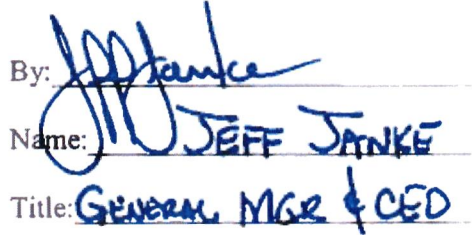 By: Jeff Janke
Name: JEFF JANKE
Title: GENERAL MGR & CEO